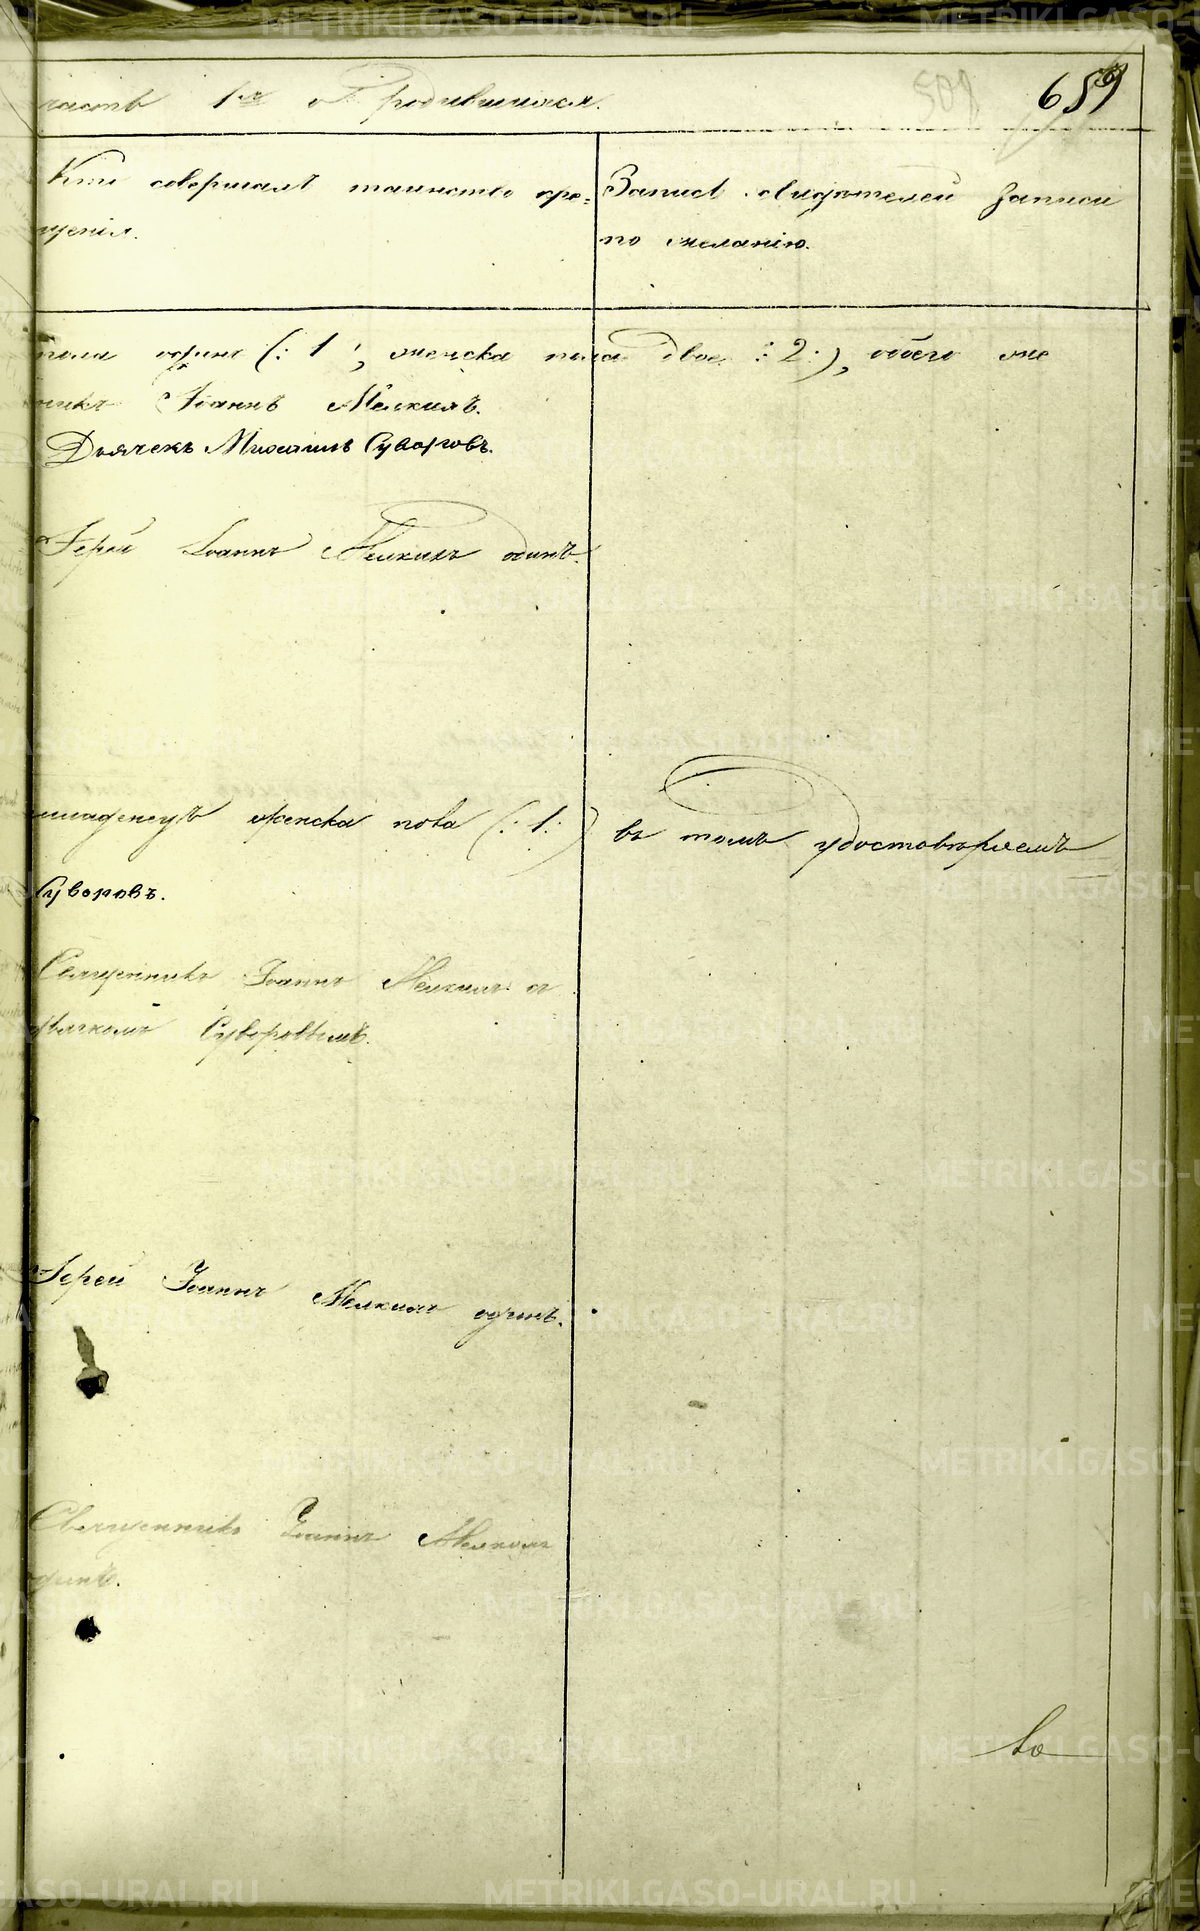 часть 1ая о родившихся.
659
Кто совершалъ таинство кре-
щенія.
Запись свидѣтелей записи
по желанію.
пола одинъ (: 1 :, женска пола двое : 2 :), обоего же
никъ Іоаннъ Мелкихъ.
Дьячекъ Михаилъ Суворовъ.
Іерей Іоаннъ Мелкихъ одинъ.
младенецъ женска пола (: 1 :) въ томъ удостовѣряемъ
Суворовъ.
Священникъ Іоаннъ Мелкихъ съ
дьячкомъ Суворовымъ.
Іерей Іоаннъ Мелкихъ одинъ.
Священникъ Іоаннъ Мелкихъ
одинъ.
METRIKI.GASO-URAL.RU